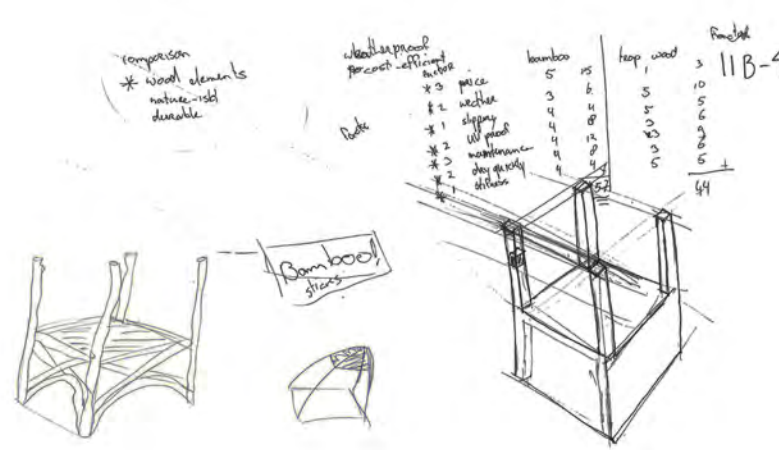 comparison
* wood elements
nature-isbl
durable
weatherproof
cost-efficient
factor
bamboo
trop. wood
11B-4
* 3 price 5 15 1 3
* 2 weather 3 6 5 10
* 1 slippery 4 4 5 5
* 2 UV proof 4 8 3 6
* 3 maintenance 4 12 *3 9
* 2 dry quickly 4 8 3 6
* 1 stifness 4 4 5 5 +
57 44
Bamboo!